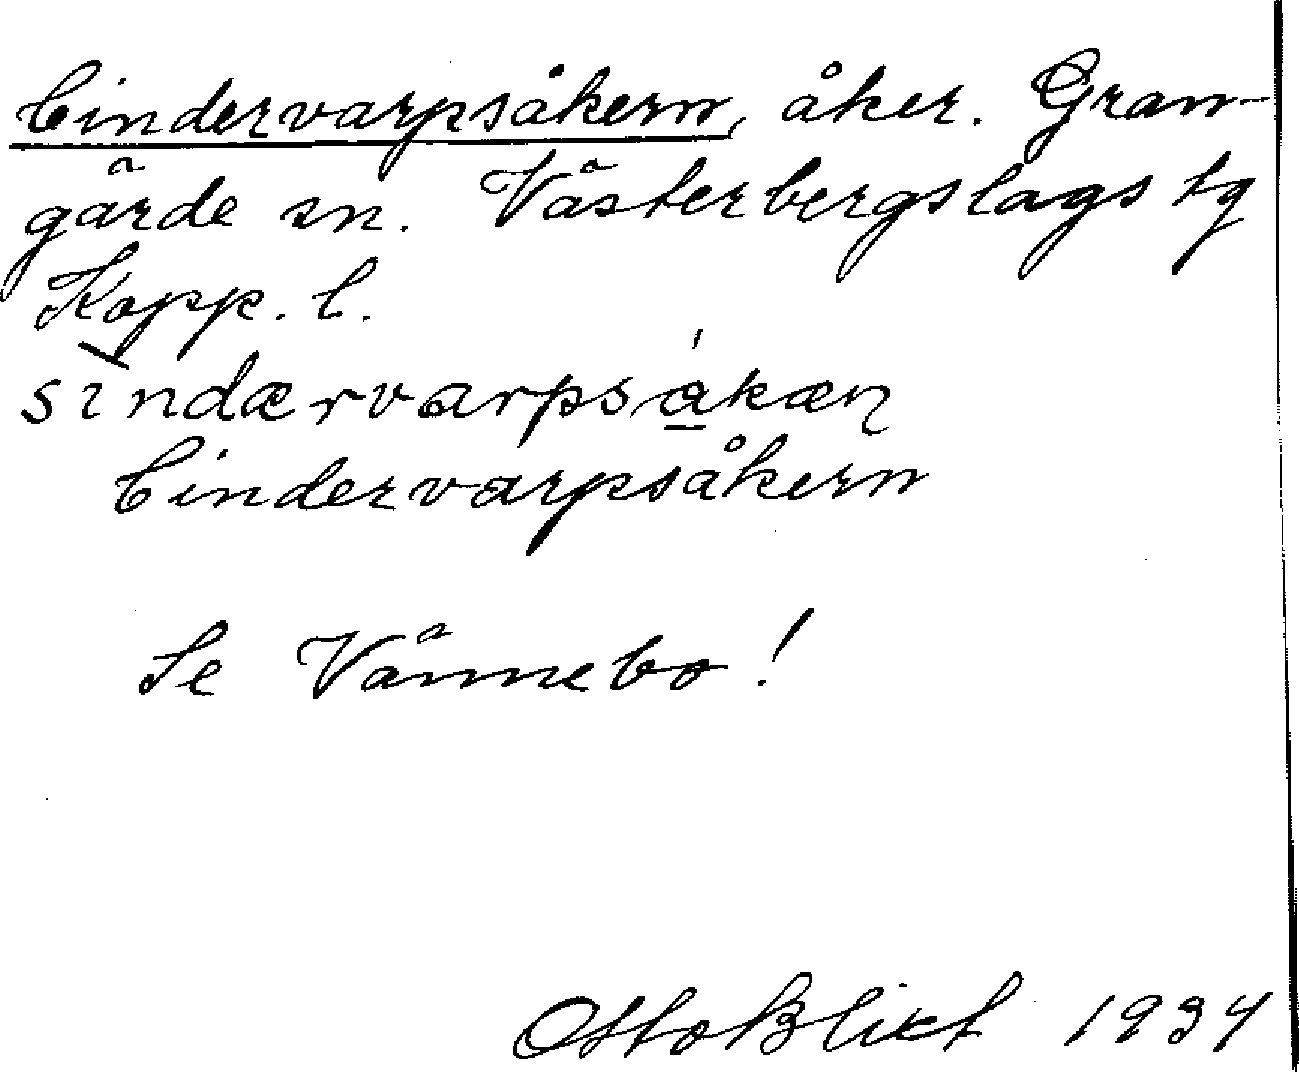 Cindervarpsåkern, åker. Gran-
gärde sn. Västerbergslags tg
Kopp. l.
sindærvarpsåkæn
Cindervarpsåkern
Se Vännebo!
Otto Blixt 1934